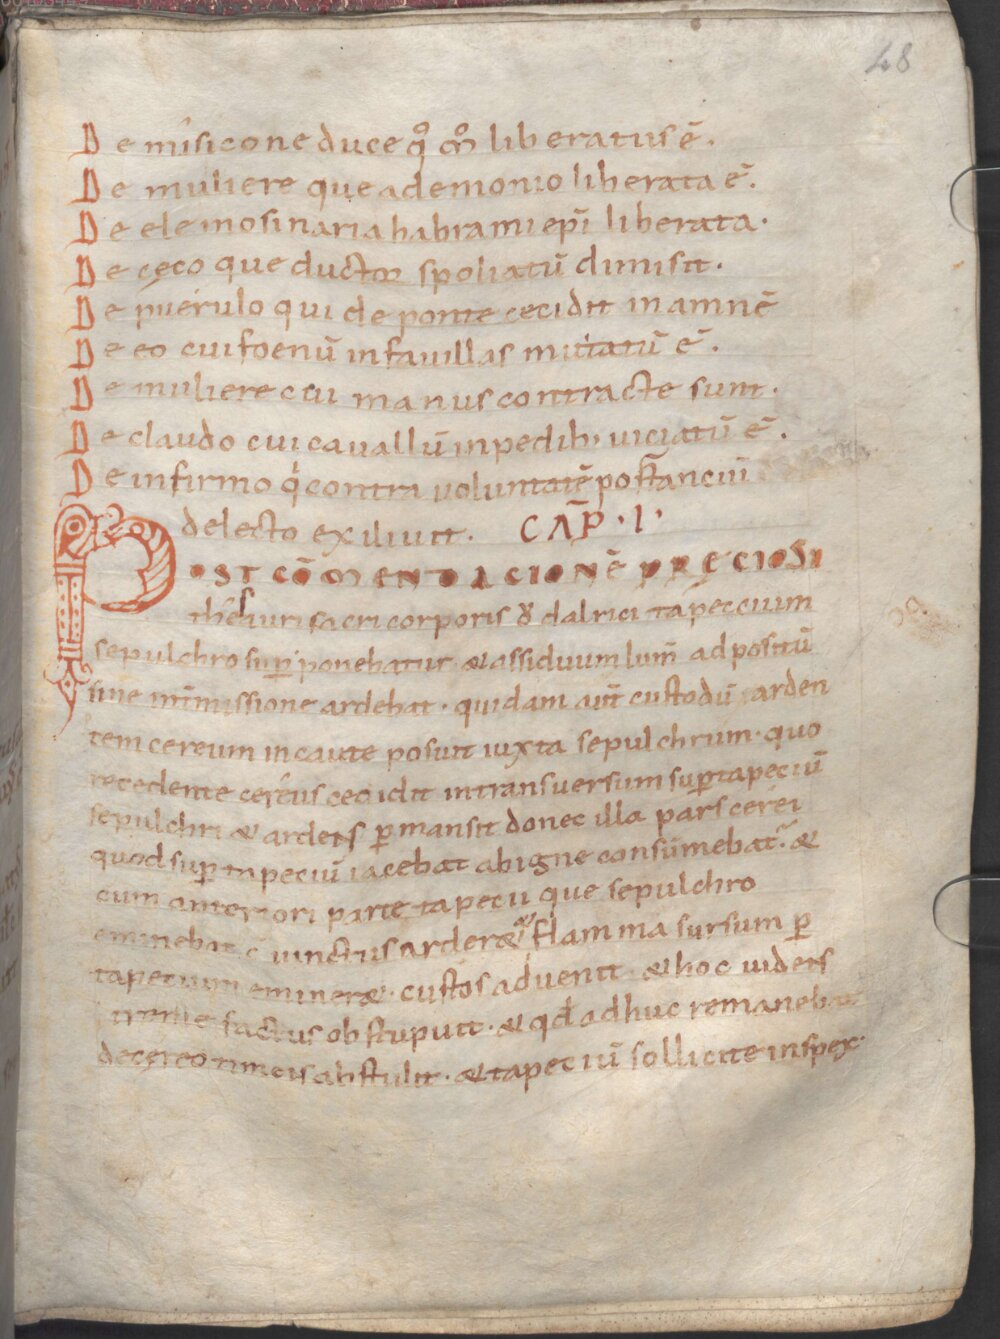 48
De misicone duce qͦ mͦ liberatus ē.
De muliere que a demonio liberata ē.
De elemosinaria habrami ep̄i liberata.
De cęco que ductor spoliatū dimisit.
De puerulo qui de ponte cecidit in amnē
De eo cui foenū in fauillas mutatū ē.
De muliere cui manus contracte sunt.
De claudo cui cauallū in pedib; uiciatū ē.
De infirmo qͥ contra voluntatē postanciū
delecto exiliuit. CAP̄ · I ·
POST CŌMENDACIONĒ PRECIOSI
thesauri sacri corporis ỡdalrici tapecium
sepulchro suꝑponebatur. & assiduum lum̄ adpositū
sine int̄missione ardebat. quidam aut̄ custodū arden
tem cereum incaute posuit iuxta sepulchrum. quo
recedente cereus cecidit in transuersum suꝑ tapeciū
sepulchri & ardens ꝑmansit donec illa pars cerei
quod suꝑ tapeciū iacebat ab igne consumebat᷑. &
cum anteriori parte tapecii que sepulchro
eminebat cuinctus arder&. flamma sursum ꝑ
tapecium eminer&. custos aduenit. & hoc uidens
factus obstupuit. & qđ adhuc remanebat
de cereo abstulit. & tapeciū sollicite inspex